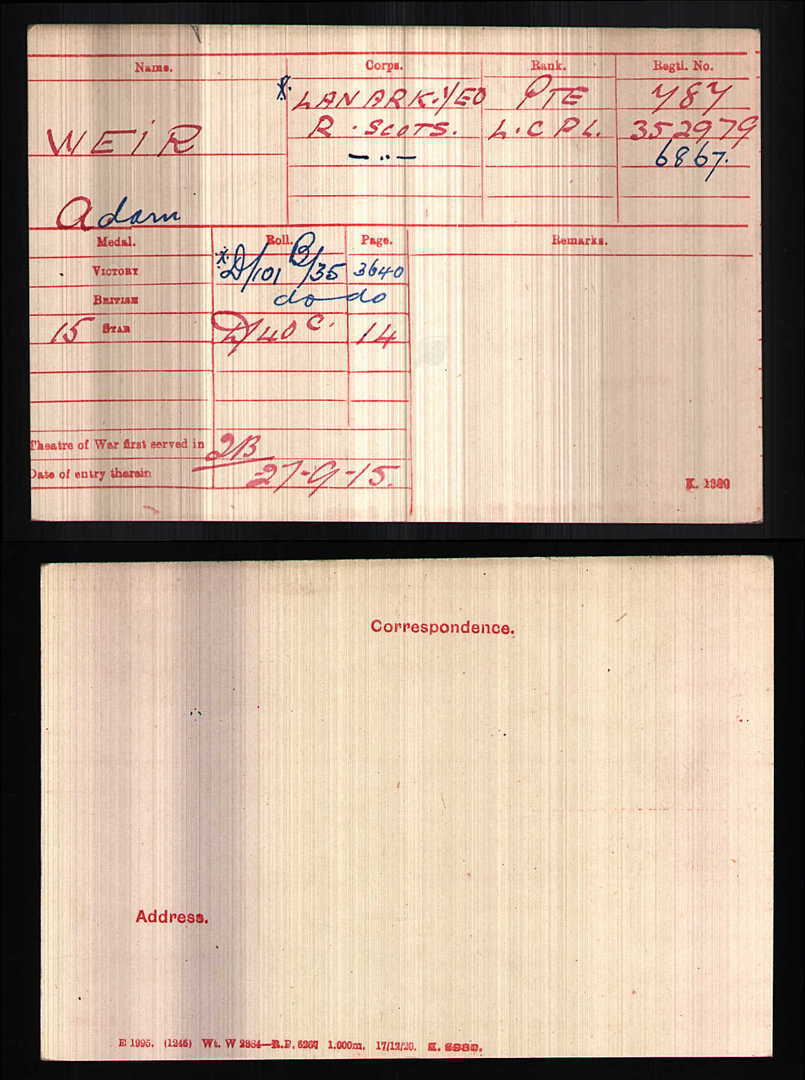 Name. Corps. Rank. Regtl. No.
X. LANARK. Y/EO PTE 787
WEIR R. SCOTS. L. CPL. 352979
— .. — 6867.
Adam
Medal. Roll. Page. Remarks.
VICTORY X. D/101 B/35 3640
BRITISH do do
15 STAR D/40 C. 14
Theatre of War first served in 2B
Date of entry therein 27-9-15.
K. 1380
Correspondence.
Address.
E 1995. (1245) Wt. W 2884—R.P. 6267 1,000m. 17/12/20.